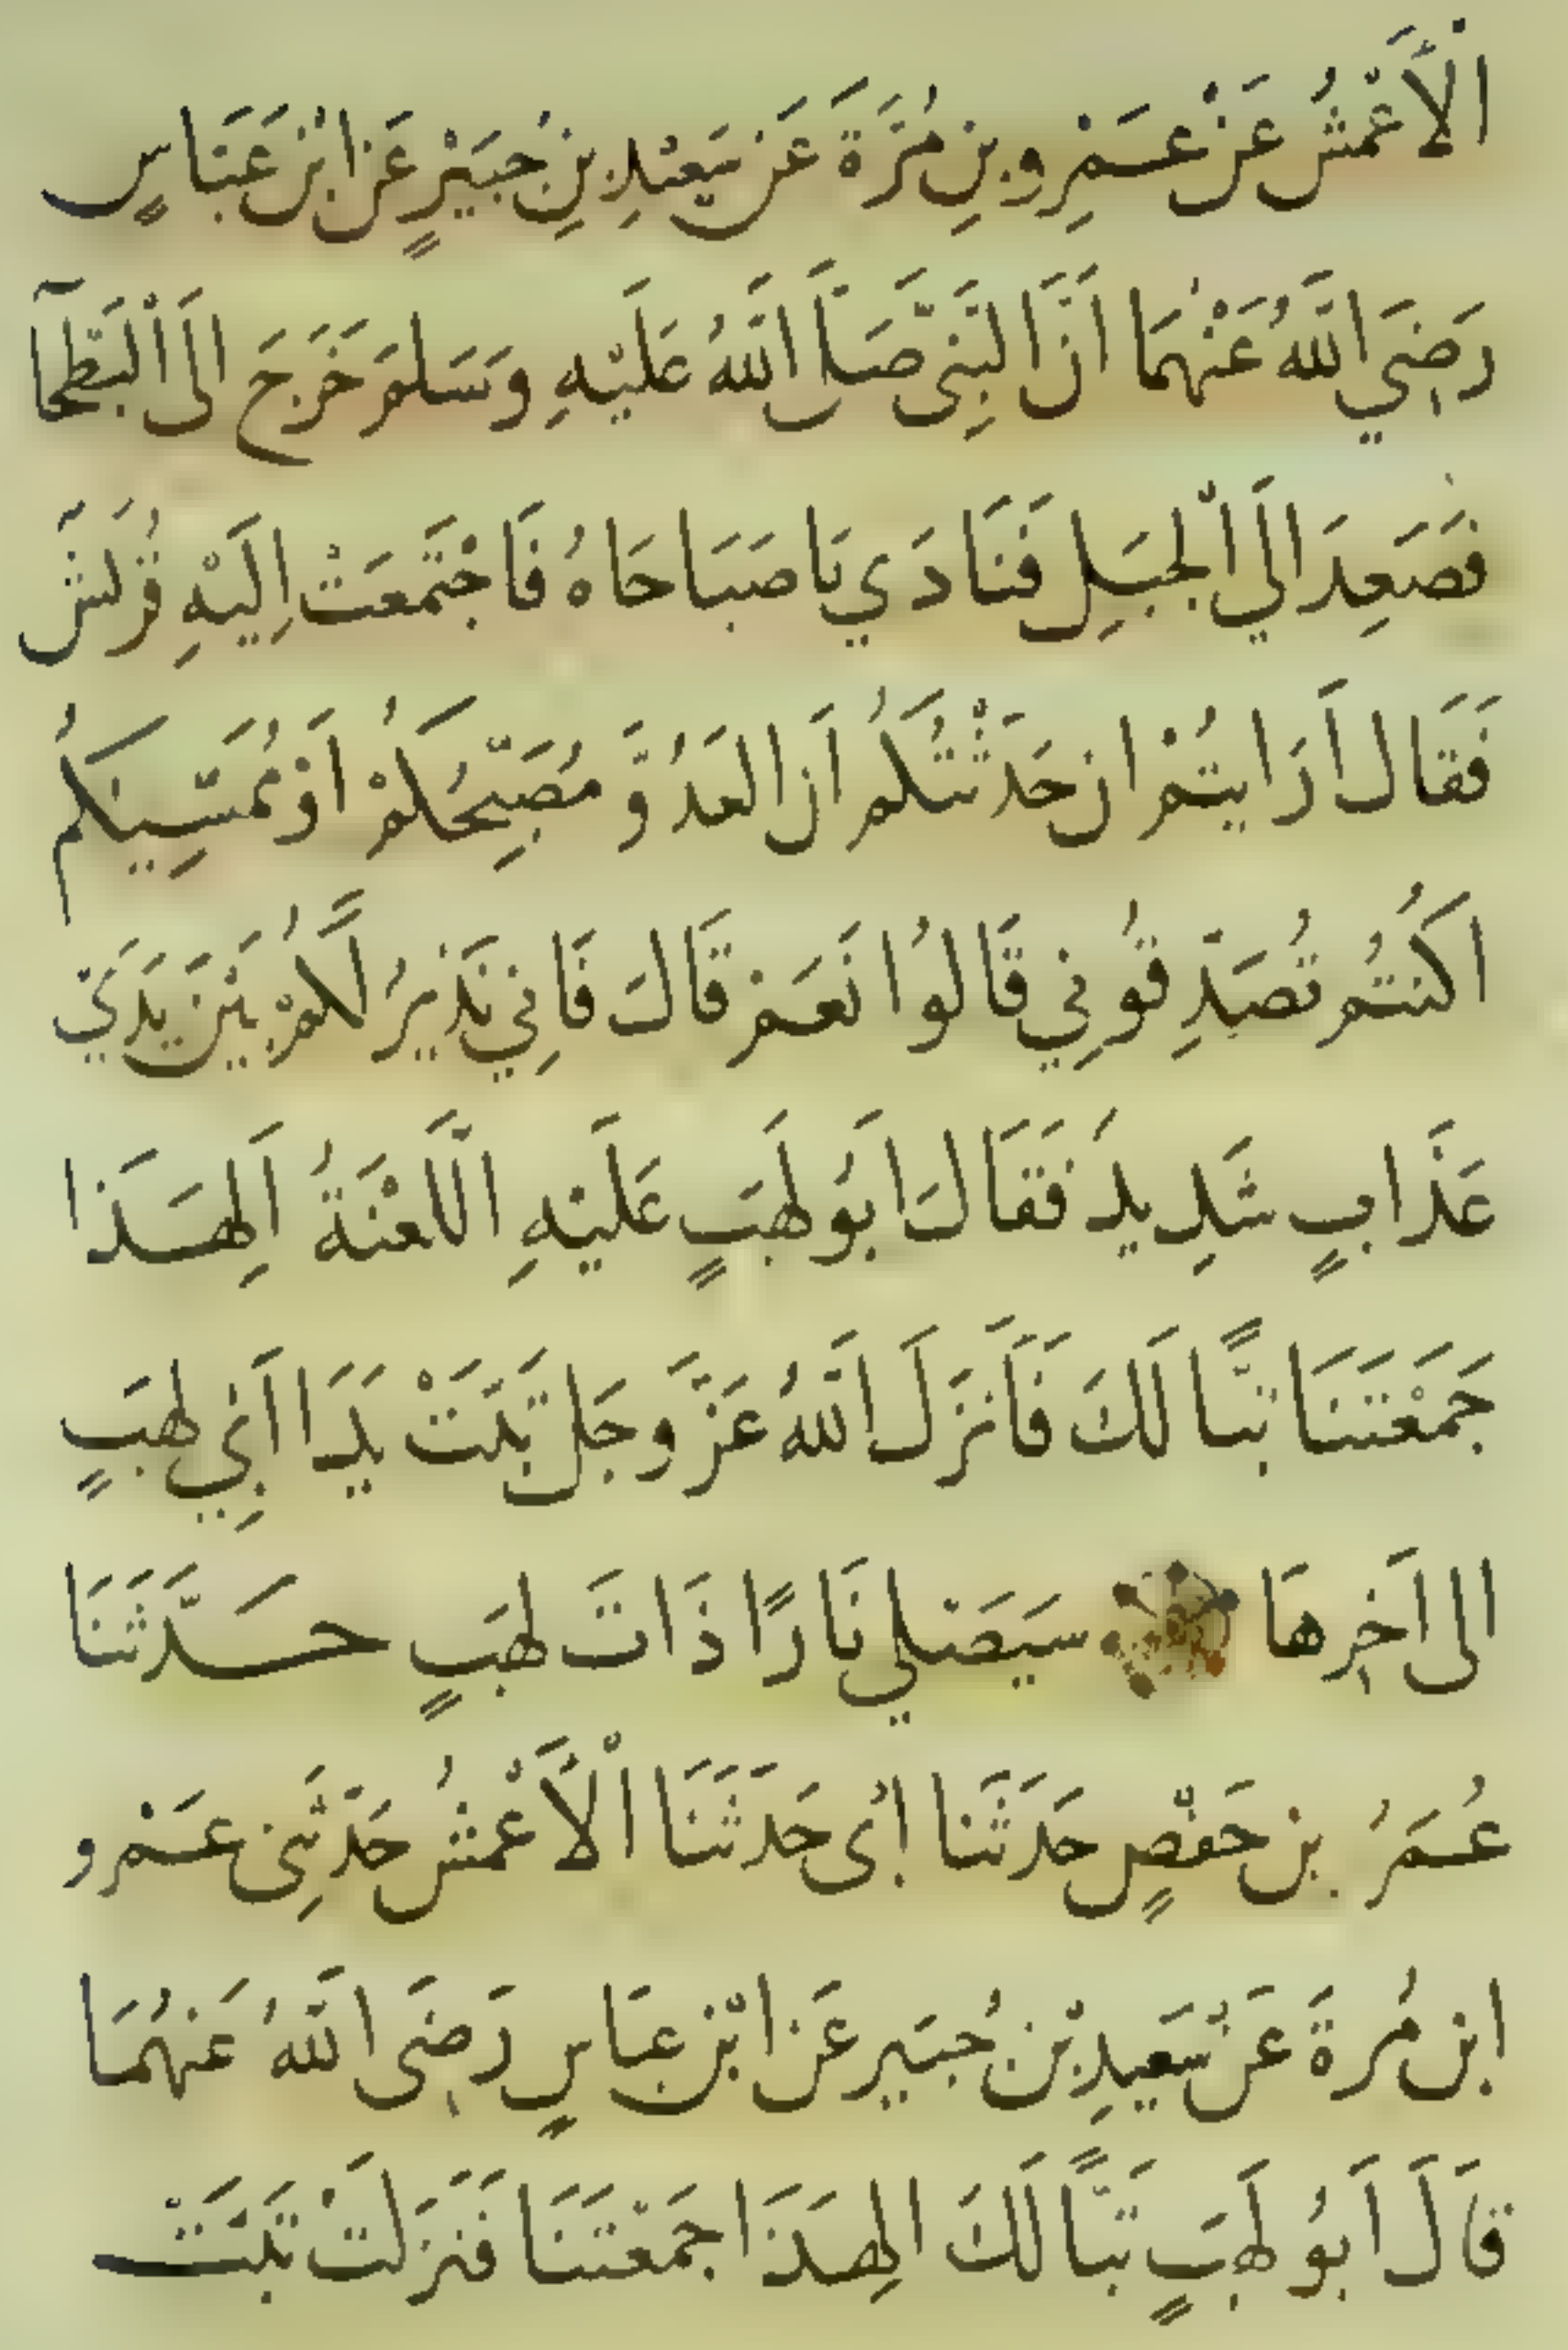 الْأَعْمَشُ عَنْ عَمْرِو بنِ مُرَّةَ عَن سَعِيْدِ بنِ جُبَيْرٍ عَنِ ابْنِ عَبَّاسٍ
رَضِيَ اللَّهُ عَنْهُمَا أَنَّ النَّبِيَّ صَلَّى اللَّهُ عَلَيْهِ وَسَلَّمَ خَرَجَ إلَى الْبَطْحَآ
فَصَعِدَ إلَي الْجَبَلِ فَنَادَي يَا صَبَاحَاهُ فَاجْتَمَعَتْ إِلَيْهِ قُرَيشٌ
فَقَالَ أَرَايتُمْ ان حَدَّثْتُكُم أَنَّ العَدُوَّ مُصَبِّحُكُمْ أَوْ مُمَسِّيكُمُ
اكُنتُم تُصَدِّقُونِي قَالُوا نَعَم قَالَ فَانِي نَذِيرٌ لَّكُمْ بَيْنَ يَدَيْ
عَذَابٍ شَدِيدٍ فَقَالَ أَبُو لَهَبٍ عَلَيْهِ اللَّعْنَةُ أَلِهَذَا
جَمَعْتَنَا تبًّا لَكَ فَأَنزَلَ اللَّهُ عَزَّ وجَلَّ تَبَّتْ يَدَا أَبِي لَهَبٍ
الى آخِرِهَا سَيَصْلي نَارًا ذَاتَ لَهَبٍ حَدَّثَنَا
عُمَرُ بن حَفْصٍ حَدَّثَنَا أبى حَدَّثَنَا الْأَعْمَشُ حَدَّثَنِى عَمْرو
ابن مُرةَ عَنْ سَعِيدِ بْنِ جُبَيرِ عَنِ ابْنِ عبَاسٍ رَضِىَ اللَّهُ عَنهُمَا
قَالَ أَبُو لَهَبٍ تَبًّا لَكَ الِهَذَا جَمَعْتَنَا فَنَزَلَتْ تَبَّتْ